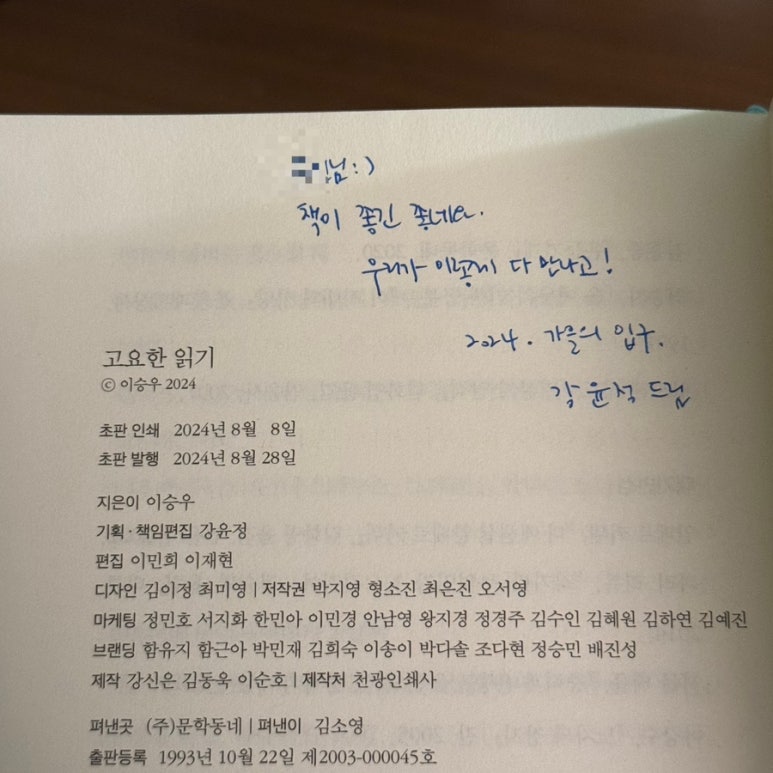 님:)
책이 좋긴 좋네요.
우리가 이렇게 다 만나고!
2024. 가을의 입구.
강윤정 드림
고요한 읽기
ⓒ 이승우 2024
초판 인쇄 2024년 8월 8일
초판 발행 2024년 8월 28일
지은이 이승우
기획·책임편집 강윤정
편집 이민희 이재현
디자인 김이정 최미영 | 저작권 박지영 형소진 최은진 오서영
마케팅 정민호 서지화 한민아 이민경 안남영 왕지경 정경주 김수인 김혜원 김하연 김예진
브랜딩 함유지 함근아 박민재 김희숙 이송이 박다솔 조다현 정승민 배진성
제작 강신은 김동욱 이순호 | 제작처 천광인쇄사
펴낸곳 (주)문학동네 | 펴낸이 김소영
출판등록 1993년 10월 22일 제2003-000045호